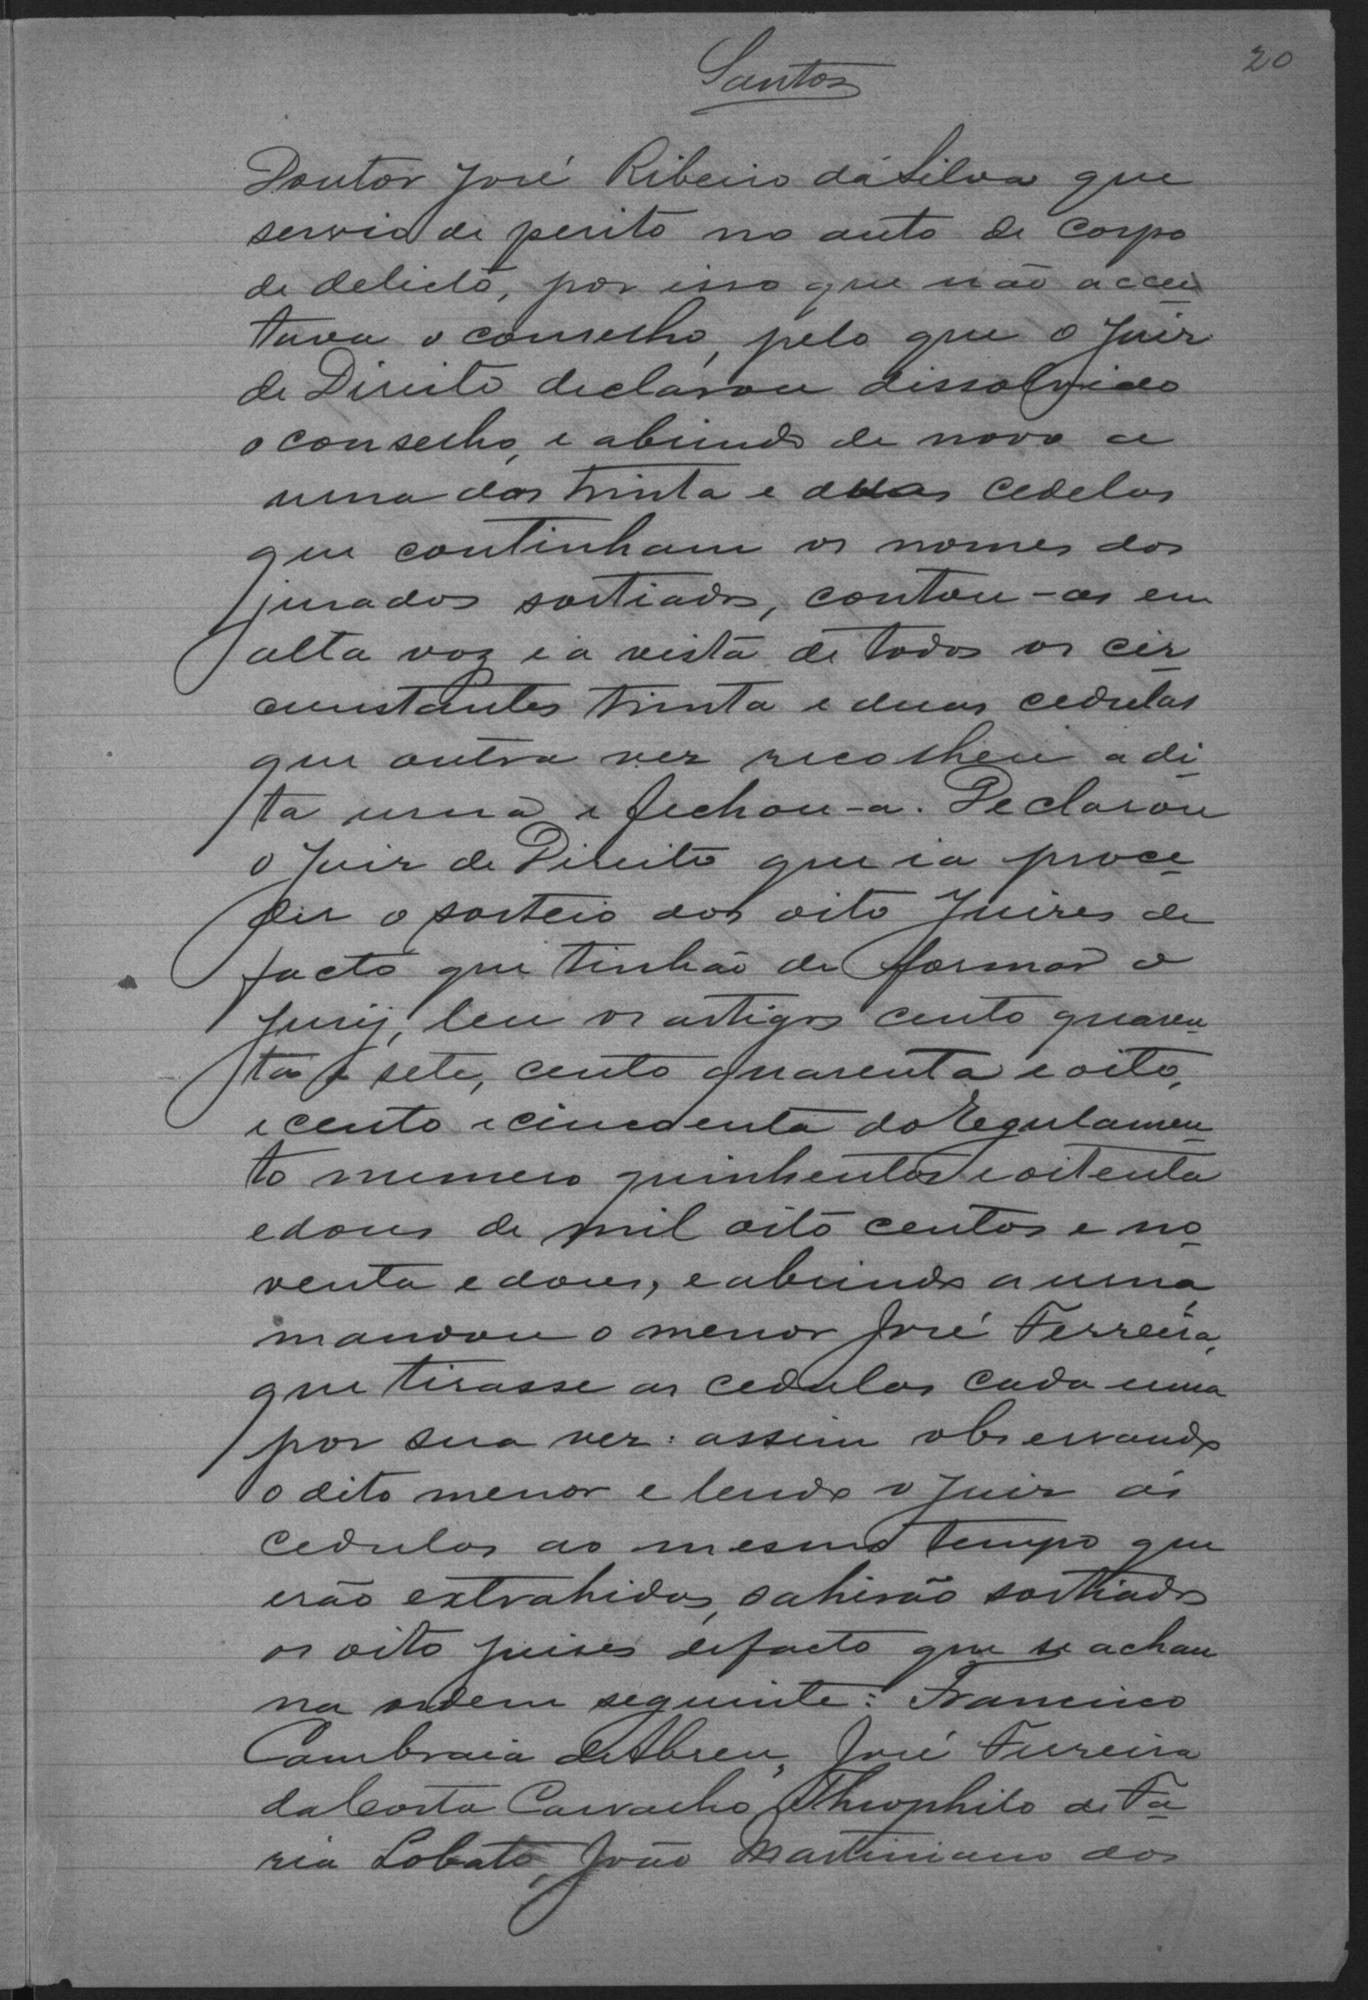 20
Santos
Doutor José Ribeiro da Silva que
servio de perito no auto de corpo
de delicto, por isso que não accei-
tava o conselho, pelo que o Juiz
de Direito declarou dissolvido
o conselho, e abrindo de novo a
urna das trinta e duas cedelas
que continham os nomes dos
jurados sortiados, contou-as em
alta voz e a vista de todos os cir-
cunstantes trinta e duas cedulas
que outra vez recolheu a di-
ta urna e fechou-a. Declarou
o Juiz de Direito que ia proce-
der o sorteio dos oito Juizes de
facto que tinhão de formar o
Jury, leu os artigos cento quaren-
ta e sete, cento quarenta e oito,
e cento e cincoenta do Regulamen-
to numero quinhentos e oitenta
e dous de mil oito centos e no-
venta e dous, e abrindo a urna,
mandou o menor José Ferreira,
que tirasse as cedulas cada uma
por sua vez: assim observando
o dito menor e lendo o Juiz as
cedulas ao mesmo tempo que
erão extrahidas, sahirão sortiados
os oito juises de facto que se acham
na ordem seguinte: Francisco
Cambraia de Abreu, José Ferreira
da Costa Carvalho, Theophilo de Fa-
ria Lobato, João Martiniano dos